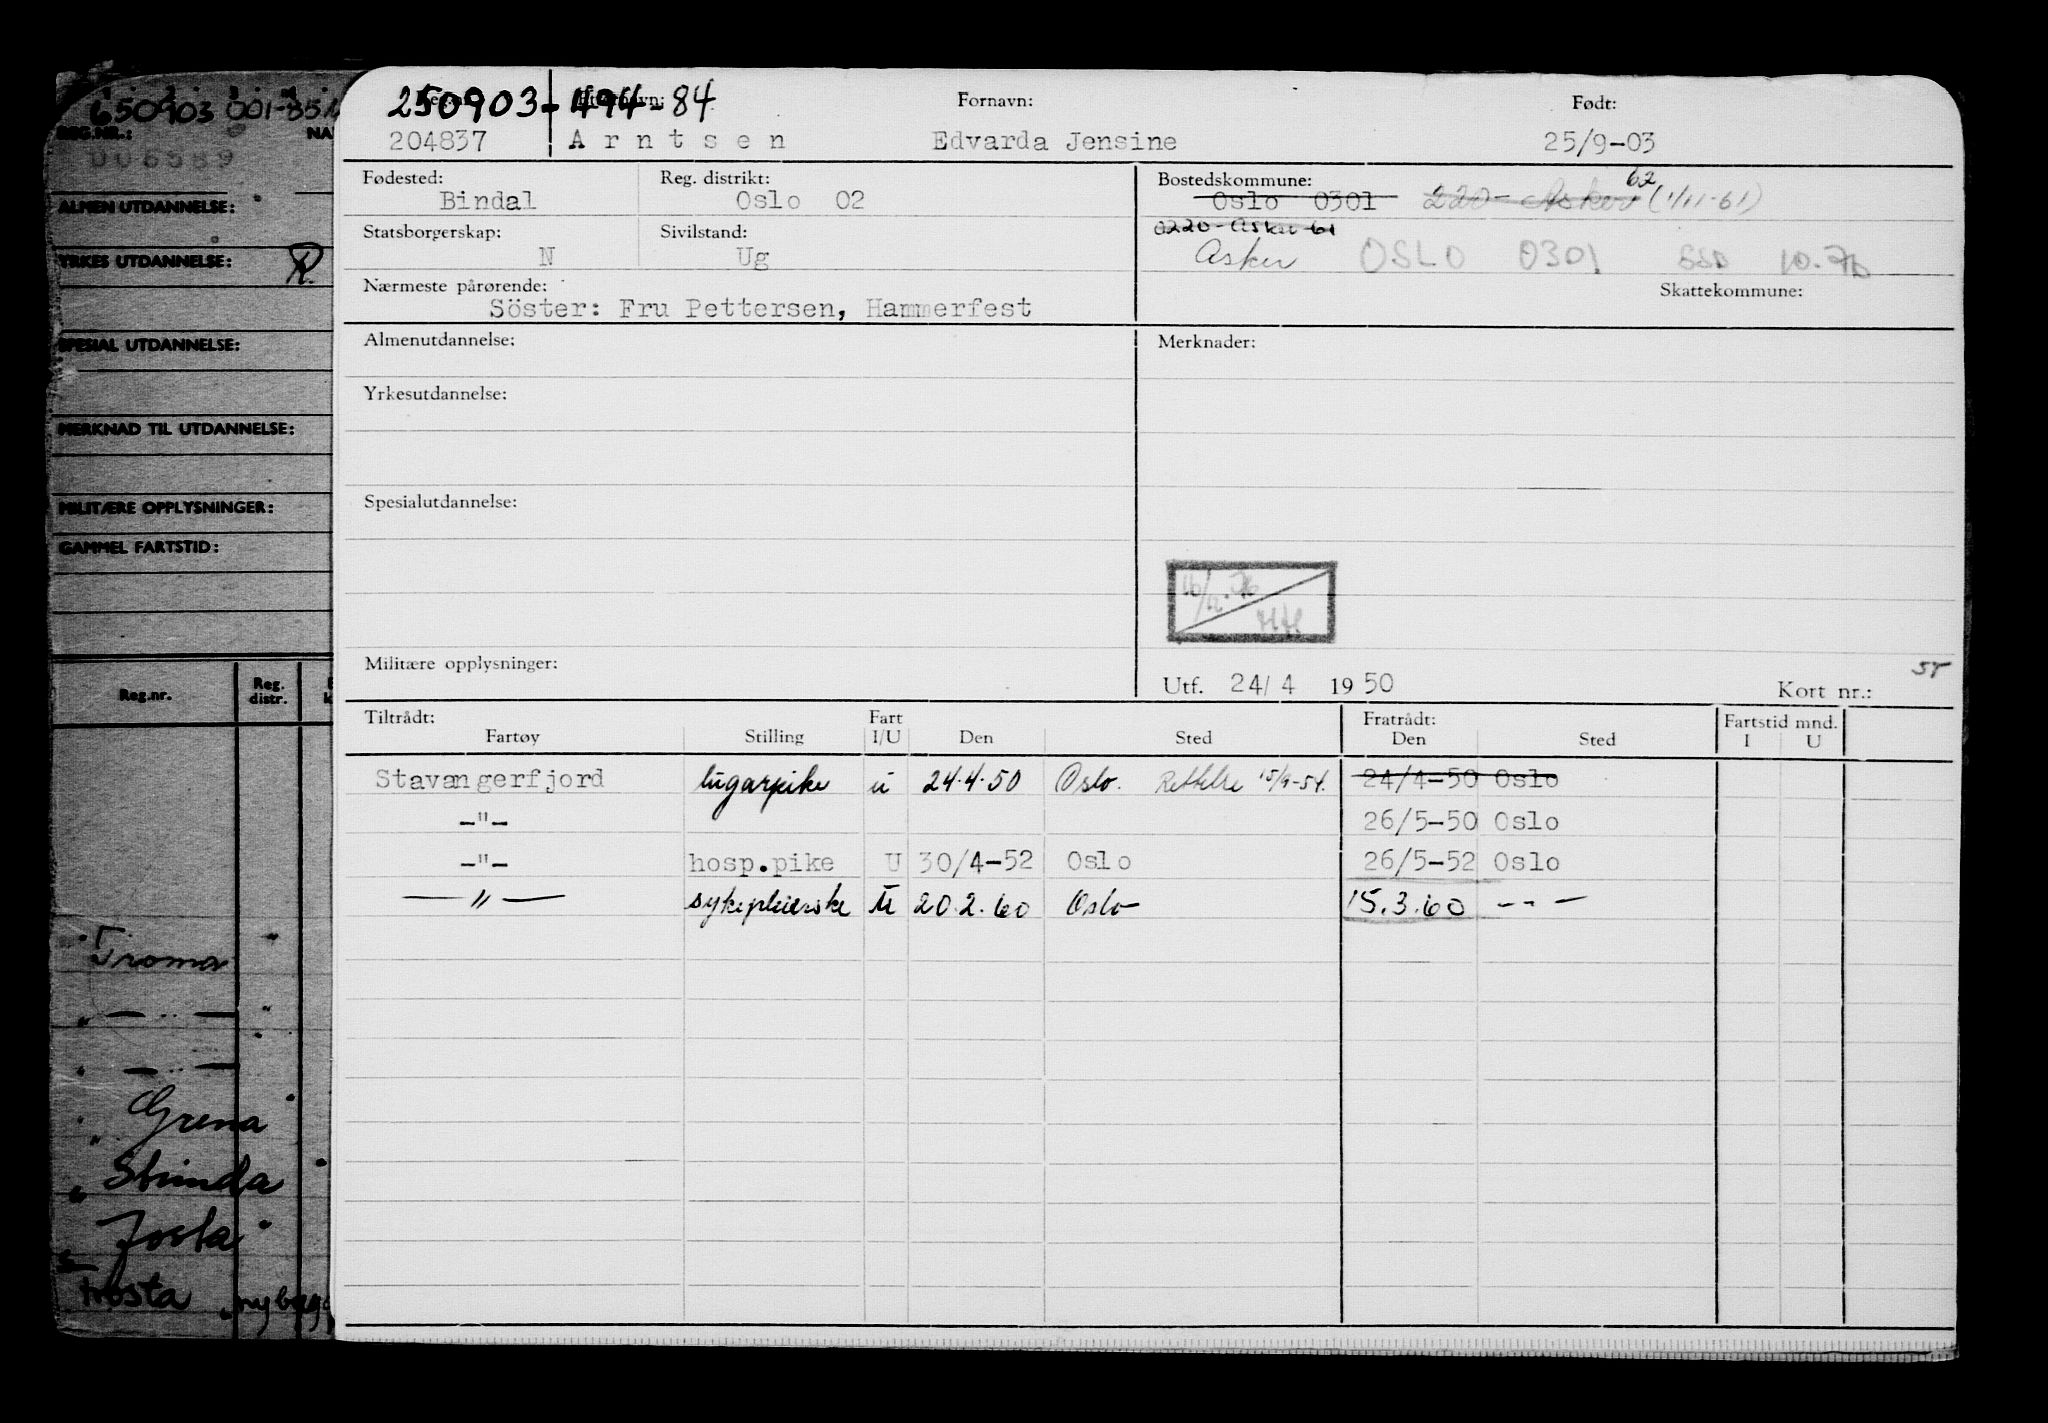 650903 001-
REG.NR.: NA
006589
ALMEN UTDANNELSE:
YRKES UTDANNELSE: R.
SPESIAL UTDANNELSE:
MERKNAD TIL UTDANNELSE:
MILITÆRE OPPLYSNINGER:
GAMMEL FARTSTID:
Reg.nr. Reg. distr.
Troma
" — .. — "
" — .. —
" Grena "
" Stinda "
" Josta "
Trosta
250903-494-84
Fornavn: Født:
204837 Arntsen Edvarda Jensine 25/9-03
Fødested: Reg. distrikt: Bostedskommune: 62
Bindal Oslo 02 Oslo 0301 220-Asker (1/11-61)
Statsborgerskap: Sivilstand: 0220-Asker 61
N Ug Asker OSLO 0301 SSD 10.76
Nærmeste pårørende: Skattekommune:
Söster: Fru Pettersen, Hammerfest
Almenutdannelse: Merknader:
Yrkesutdannelse:
Spesialutdannelse:
16/12.76
Militære opplysninger:
Utf. 24/4 1950 Kort nr.:
Tiltrådt: Fart Fratrådt: Fartstid mnd.
Fartøy Stilling I/U Den Sted Den Sted I U
Stavangerfjord lugarpike u 24.4.50 Oslo. Rettelse 15/9-54. 24/4-50 Oslo
-"- 26/5-50 Oslo
-"- hosp.pike U 30/4-52 Oslo 26/5-52 Oslo
— " — sykepleierske U 20.2.60 Oslo 15.3.60 - - —